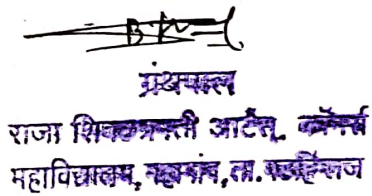 ग्रंथपाल
राजा शिवछत्रपती आर्टस्. कॉमर्स
महाविद्यालय, महागांव, ता. गडहिंग्लज